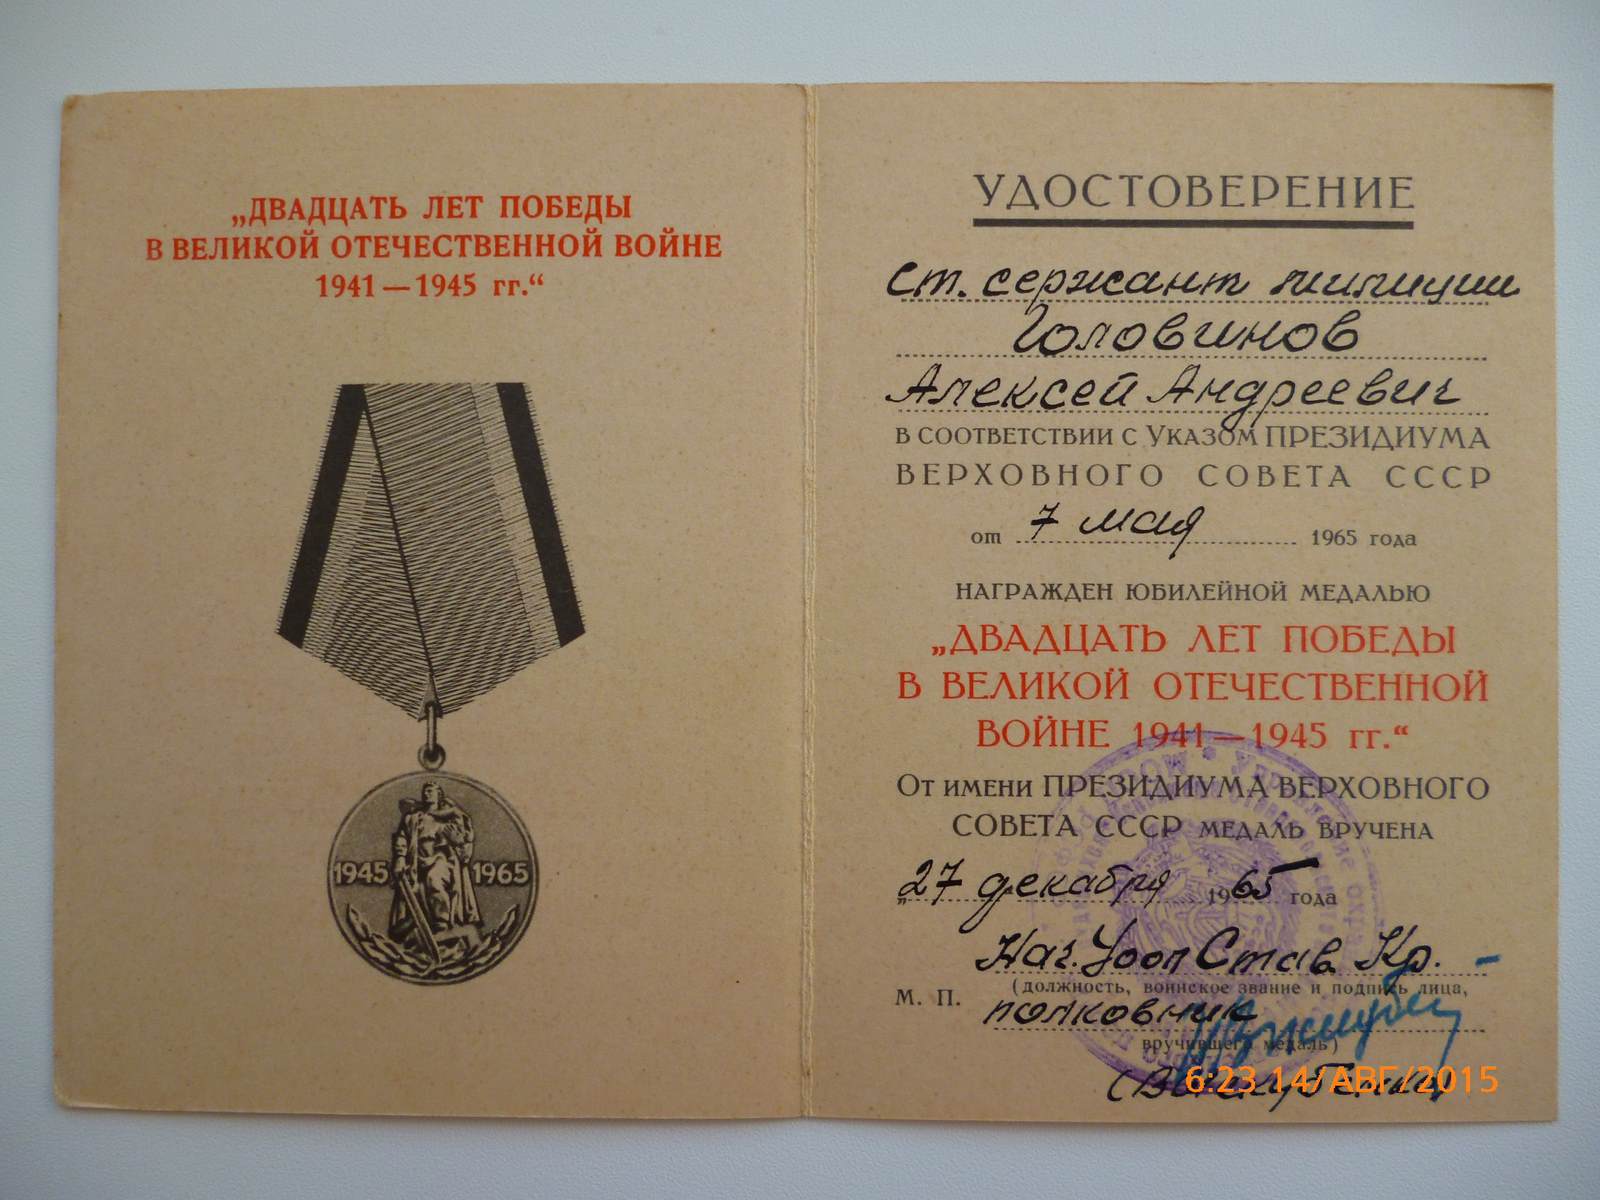 „ДВАДЦАТЬ ЛЕТ ПОБЕДЫ
В ВЕЛИКОЙ ОТЕЧЕСТВЕННОЙ ВОЙНЕ
1941 — 1945 гг.“
1945 1965
УДОСТОВЕРЕНИЕ
ст. сержант милиции
Головинов
Алексей Андреевич
В СООТВЕТСТВИИ С УКАЗОМ ПРЕЗИДИУМА
ВЕРХОВНОГО СОВЕТА СССР
от 7 мая 1965 года
НАГРАЖДЕН ЮБИЛЕЙНОЙ МЕДАЛЬЮ
„ДВАДЦАТЬ ЛЕТ ПОБЕДЫ
В ВЕЛИКОЙ ОТЕЧЕСТВЕННОЙ
ВОЙНЕ 1941 — 1945 гг.“
ОТ ИМЕНИ ПРЕЗИДИУМА ВЕРХОВНОГО
СОВЕТА СССР МЕДАЛЬ ВРУЧЕНА
„27 декабря 1965 года
Нач. Уооп Став. Кр. -
(должность, воинское звание и подпись лица,
М. П. полковник
вручившего медаль)
6:23 14/АВГ/2015